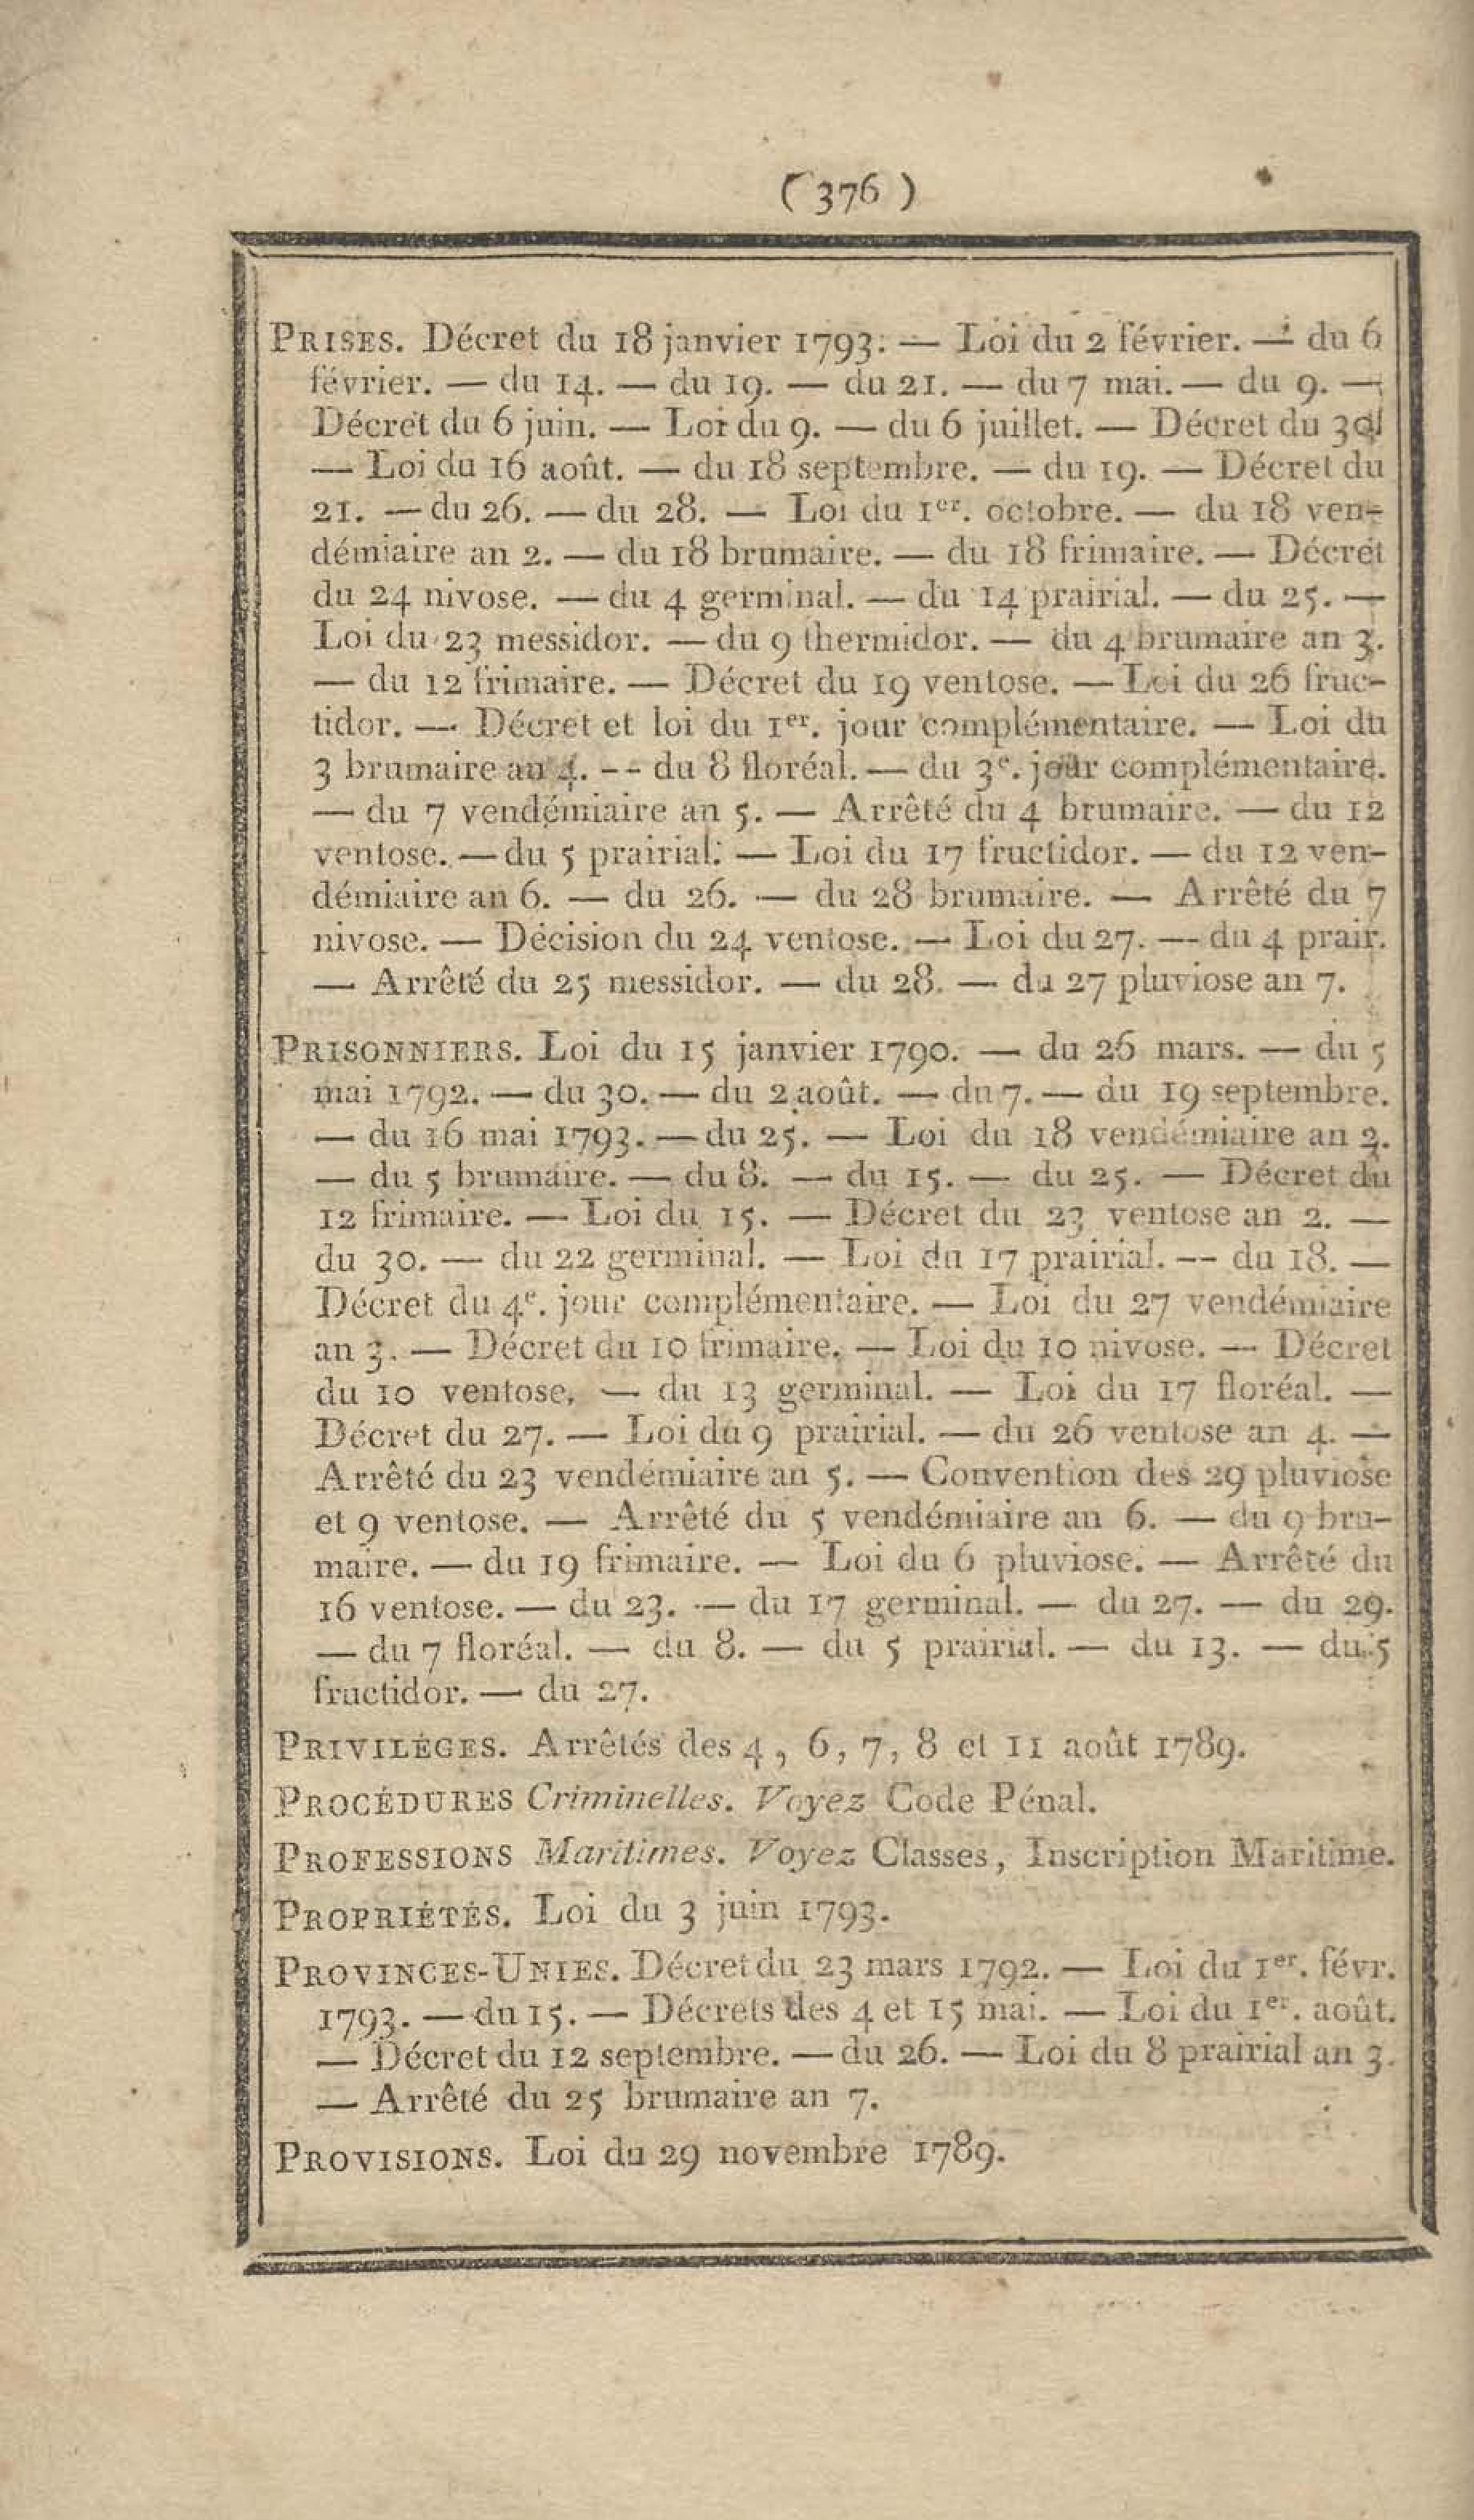 ( 376 )
PRISES. Décret du 18 janvier 1793. — Loi du 2 février. — du 6
février. — du 14. — du 19. — du 21. — du 7 mai. — du 9. —
Décret du 6 juin. — Loi du 9. — du 6 juillet. — Décret du 30.
— Loi du 16 août. — du 18 septembre. — du 19. — Décret du
21. — du 26. — du 28. — Loi du 1er. octobre. — du 18 ven-
démiaire an 2. — du 18 brumaire. — du 18 frimaire. — Décret
du 24 nivose. — du 4 germinal. — du 14 prairial. — du 25. —
Loi du 23 messidor. — du 9 thermidor. — du 4 brumaire an 3.
— du 12 frimaire. — Décret du 19 ventose. — Loi du 26 fruc-
tidor. — Décret et loi du 1er. jour complémentaire. — Loi du
3 brumaire an 4. -- du 8 floréal. — du 3e. jour complémentaire.
— du 7 vendémiaire an 5. — Arrêté du 4 brumaire. — du 12
ventose. — du 5 prairial. — Loi du 17 fructidor. — du 12 ven-
démiaire an 6. — du 26. — du 28 brumaire. — Arrêté du 7
nivose. — Décision du 24 ventose. — Loi du 27. — du 4 prair.
— Arrêté du 25 messidor. — du 28. — du 27 pluviose an 7.
PRISONNIERS. Loi du 15 janvier 1790. — du 26 mars. — du 5
mai 1792. — du 30. — du 2 août. — du 7. — du 19 septembre.
— du 16 mai 1793. — du 25. — Loi du 18 vendémiaire an 2.
— du 5 brumaire. — du 8. — du 15. — du 25. — Décret du
12 frimaire. — Loi du 15. — Décret du 23 ventose an 2. —
du 30. — du 22 germinal. — Loi du 17 prairial. -- du 18. —
Décret du 4e. jour complémentaire. — Loi du 27 vendémiaire
an 3. — Décret du 10 frimaire. — Loi du 10 nivose. — Décret
du 10 ventose. — du 13 germinal. — Loi du 17 floréal. —
Décret du 27. — Loi du 9 prairial. — du 26 ventose an 4. —
Arrêté du 23 vendémiaire an 5. — Convention des 29 pluviose
et 9 ventose. — Arrêté du 5 vendémiaire an 6. — du 9 bru-
maire. — du 19 frimaire. — Loi du 6 pluviose. — Arrêté du
16 ventose. — du 23. — du 17 germinal. — du 27. — du 29.
— du 7 floréal. — du 8. — du 5 prairial. — du 13. — du 5
fructidor. — du 27.
PRIVILÉGES. Arrêtés des 4, 6, 7, 8 et 11 août 1789.
PROCÉDURES Criminelles. Voyez Code Pénal.
PROFESSIONS Maritimes. Voyez Classes, Inscription Maritime.
PROPRIÉTÉS. Loi du 3 juin 1793.
PROVINCES-UNIES. Décret du 23 mars 1792. — Loi du 1er. févr.
1793. — du 15. — Décrets des 4 et 15 mai. — Loi du 1er. août.
— Décret du 12 septembre. — du 26. — Loi du 8 prairial an 3.
— Arrêté du 25 brumaire an 7.
PROVISIONS. Loi du 29 novembre 1789.